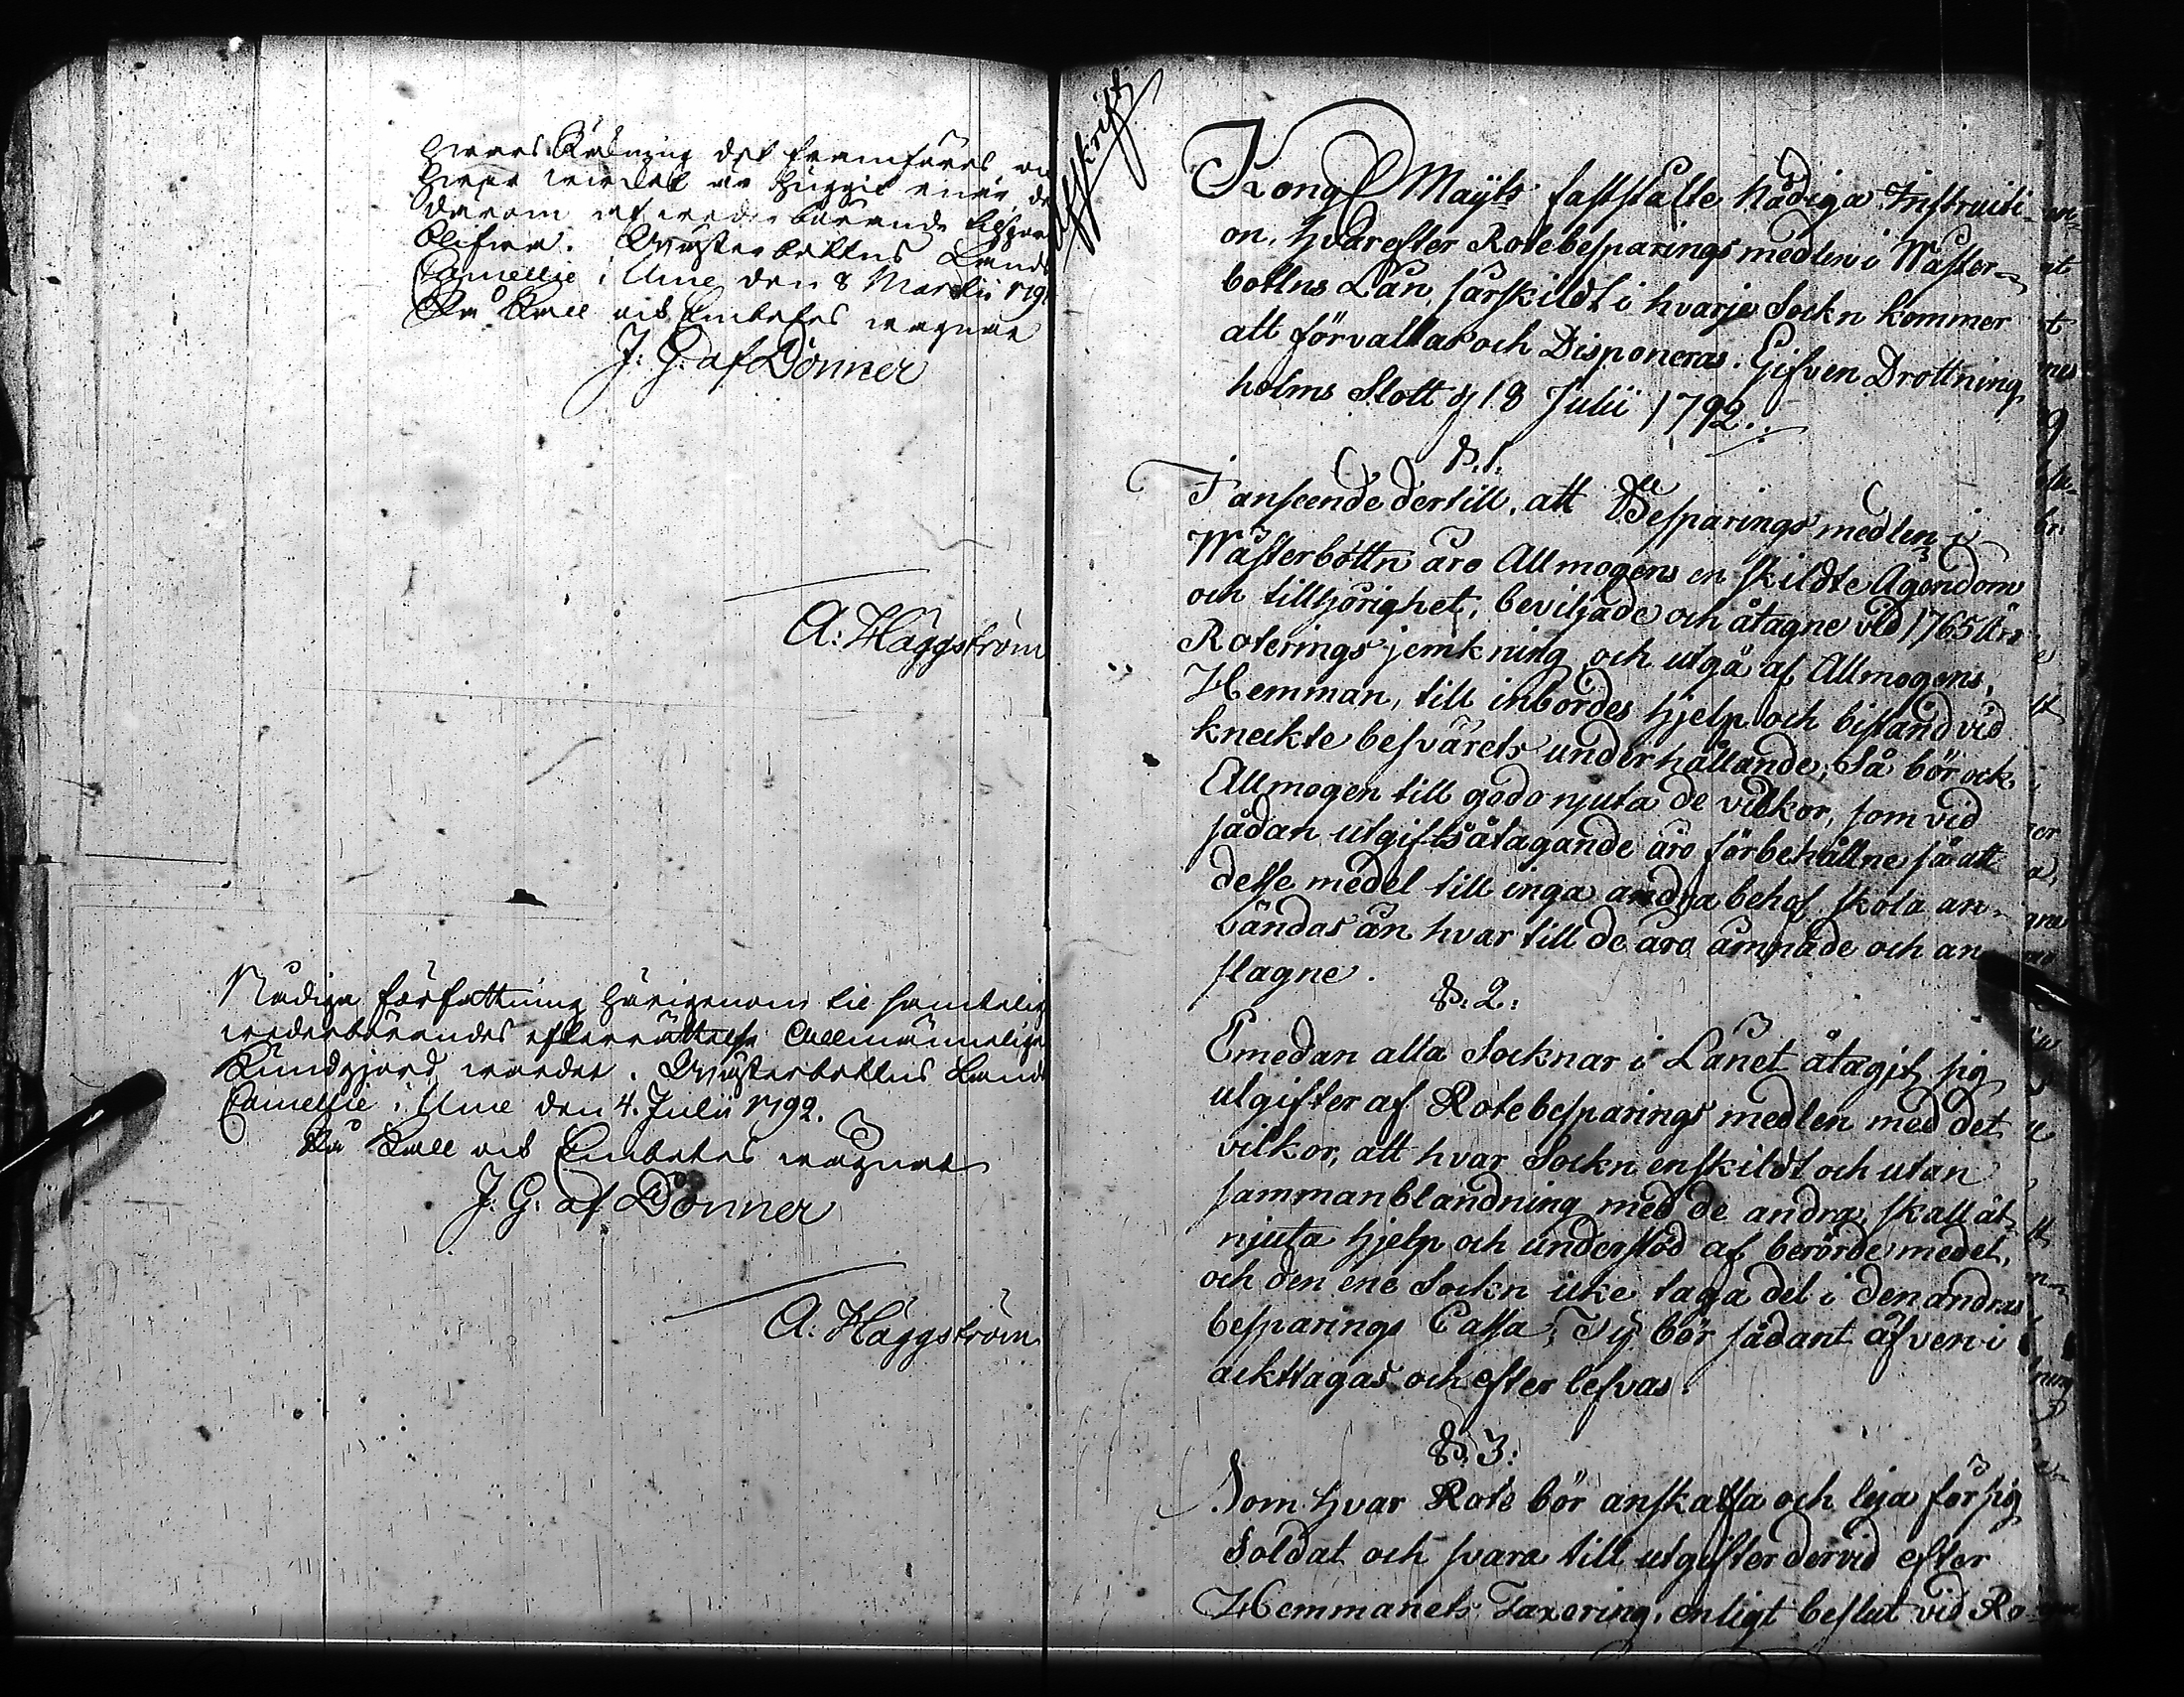 det framföres
Huggit
däraf wederbörande
blifwa. Wästerbottns Lands
Cancellie i Ume den 8 Martii 179
På Kall och Embetes wägnar
J: G: af Donner
A: Häggström
Nådiga författning härigenom til samtelig
wederbörandes efterrättelse Allmänneligen
Kundgjord warder. Wästerbottns Lands
Cancellie i Ume den 4. Julii 1792.
På Kall och Embetes wägnar
J: G: af Donner
A: Häggström
Afskrift
Kongl Mayts fastställte Nådiga Instructi-
on, hvarefter Rotebesparings medlen i Wäster-
bottns Län, särskildt i hvarje Sockn kommer
att förvaltas och Disponeras. Gifven Drottning
holms Slott d 18 Julii 1792.
§. 1.
I anseende dertill, att Besparings medlen i
Wästerbottn äro Allmogens enskildte Ägendom
och tillhörighet, beviljade och åtagne vid 1765 Års
Roterings jemkning och utgå af Allmogens,
Hemman, till inbördes hjelp och bistånd vid
knekte besvärets underhållande; Så bör ock
Allmogen till godo njuta de vilkor, som vid
sådan utgifts åtagande äro förbehållne så att
desse medel till inga andra behof skola an-
vändas än hvar till de äro ämnade och an
slagne.
§. 2:
Emedan alla Socknar i Länet åtagit sig
utgifter af Rotebesparings medlen med det
vilkor, att hvar Sockn enskildt och utan
sammanblandning med de andra, skall åt
njuta hjelp och understöd af berörde medel,
och den ene Sockn icke taga del i den andras
besparings Cassa; Ty bör sådant äfven i
ackttagas och efter lefvas.
§. 3:
Som hvar Rote bör anskaffa och leja för sig
Soldat och svara till utgifter dervid efter
Hemmanets Taxering, enligt beslut vid Ro